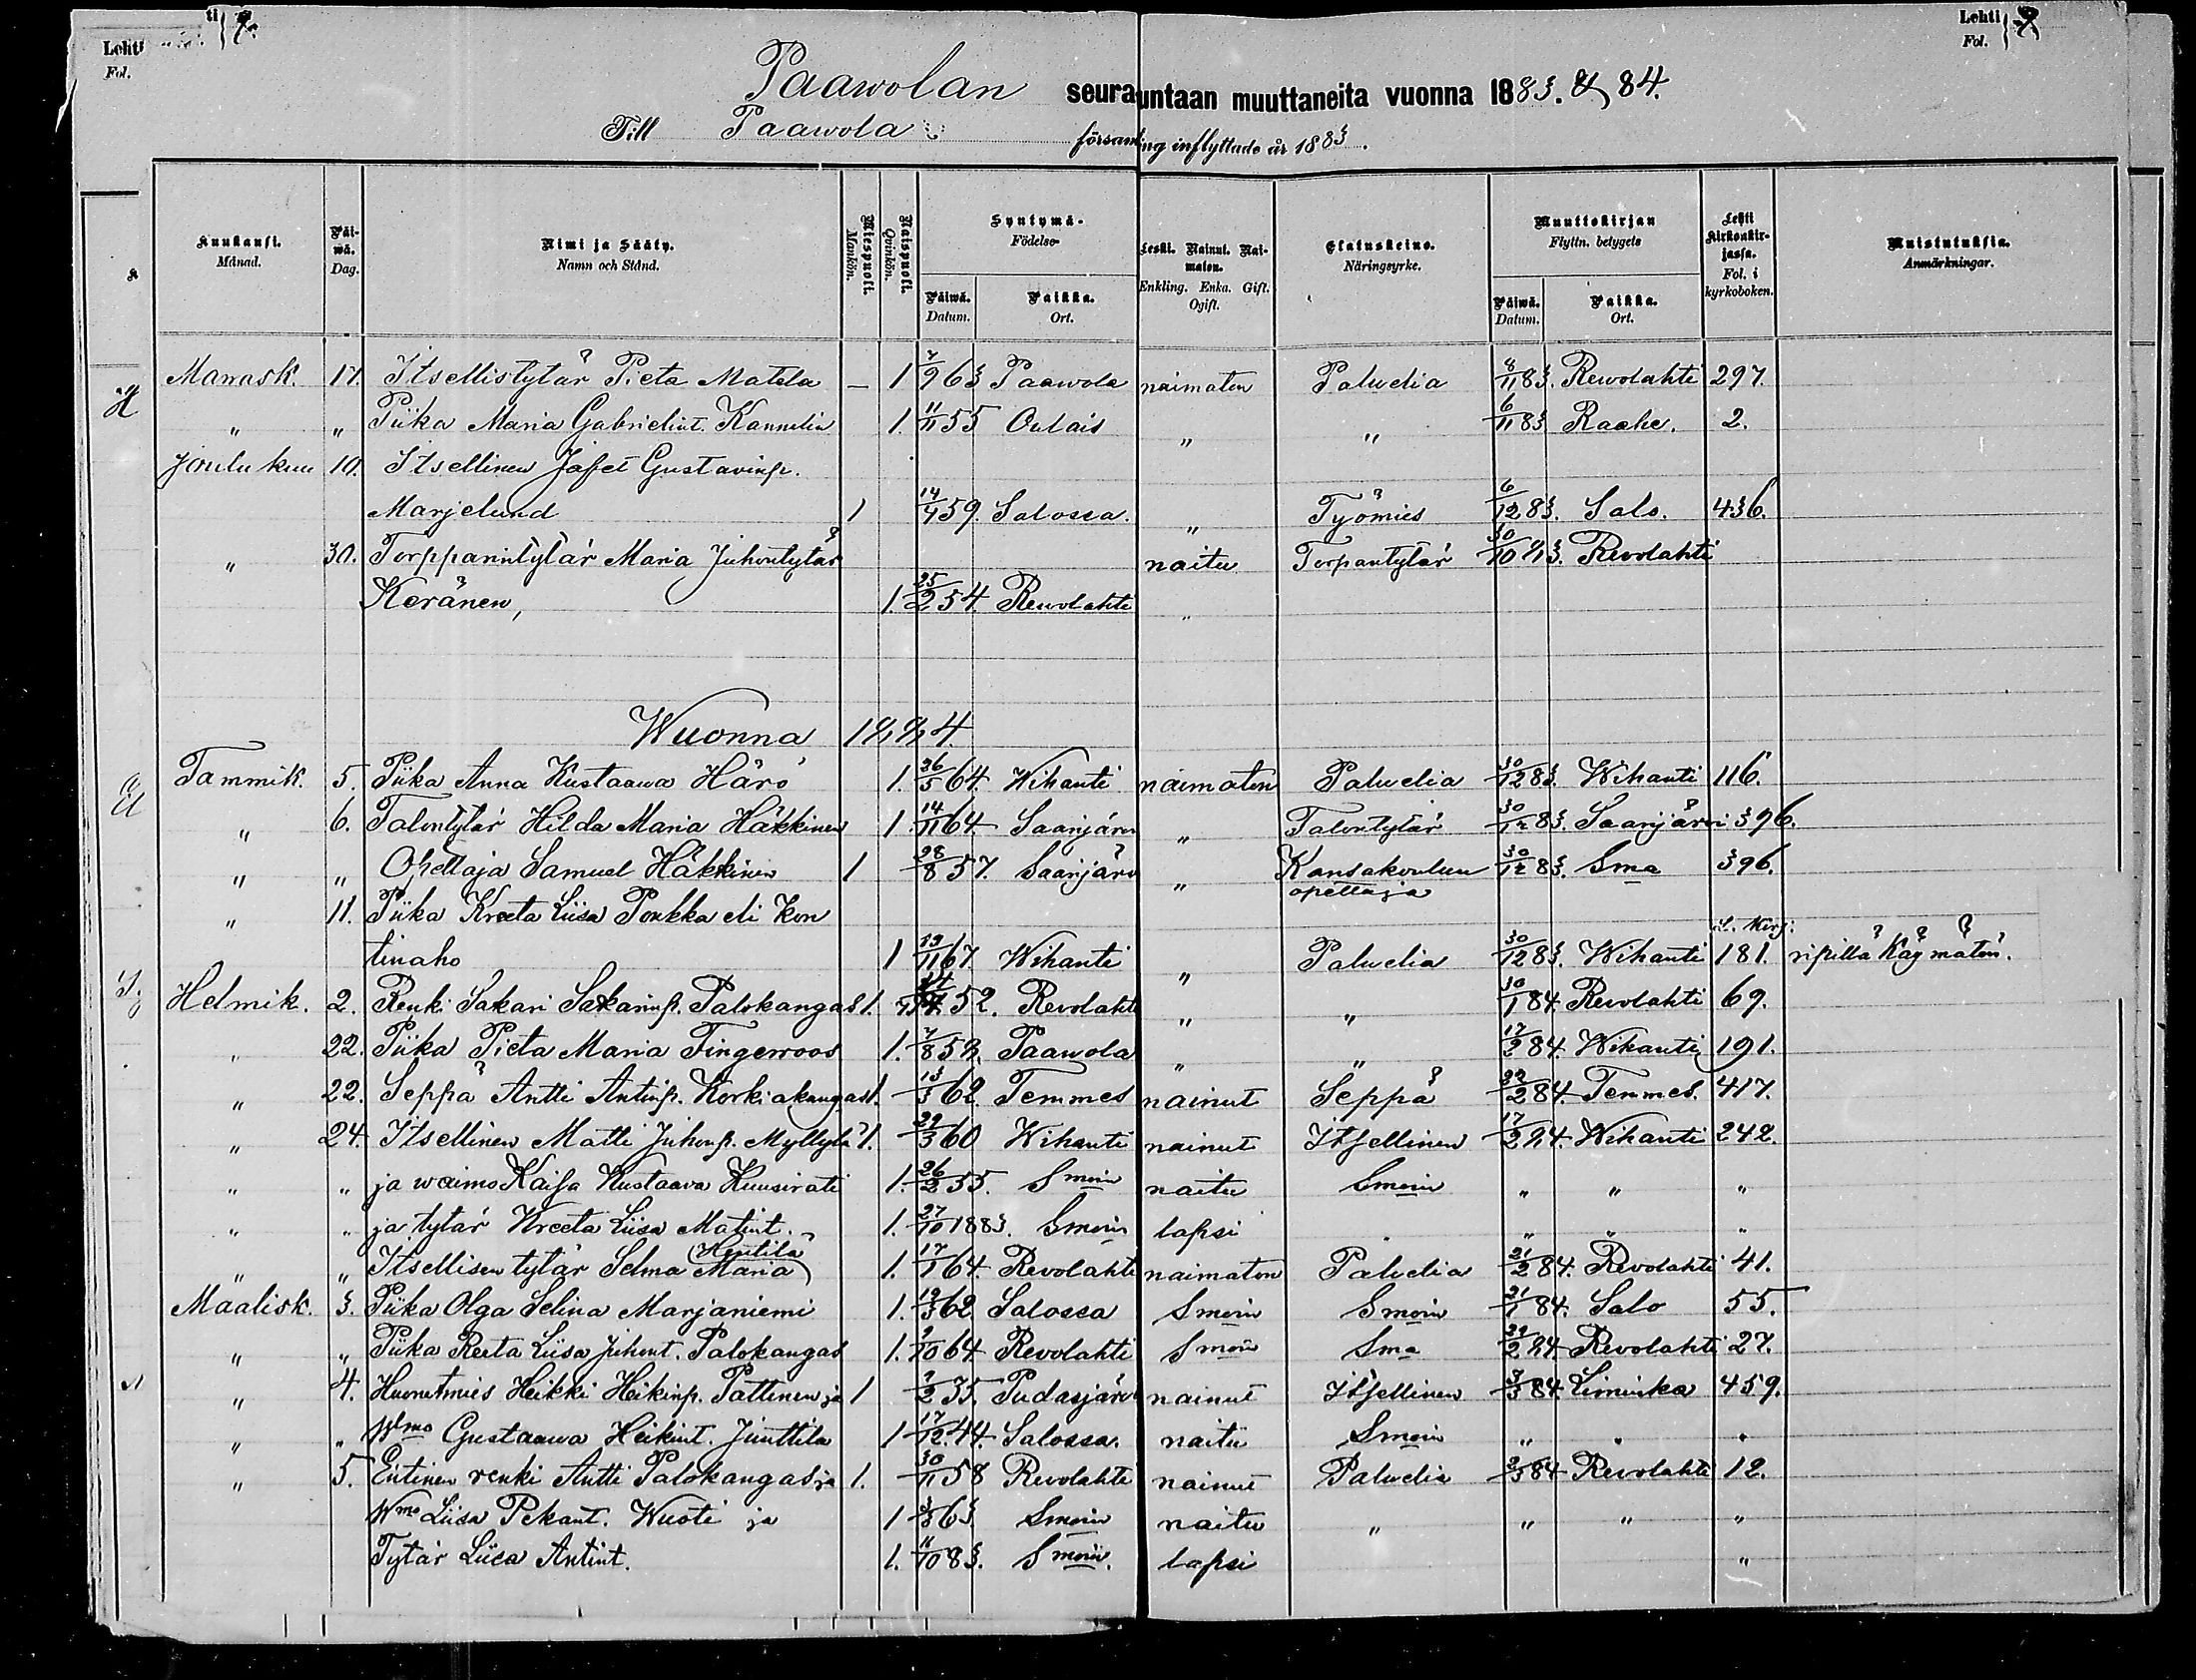 Lehti Fol. Lehti Fol.
Paawolan seurauntaan muuttaneita vuonna 1883. & 84.
Till Paawola församling inflyttade år 1883.
Kuukausi. Månad. Päi-wä. Dag. Nimi ja Sääty. Namn och Stånd. Miespuoli. Mankön. Naispuoli. Qvinkön. Syntymä- Födelse- Päiwä. Datum. Paikka. Ort. Leski. Nainut. Naimaton. Enkling. Enka. Gift. Ogift. Elatuskeino. Näringsyrke. Muuttokirjan Flyttn. betygets Päiwä. Datum. Paikka. Ort. Lehti kirkonkirjassa. Fol. i kyrkoboken. Muistutuksia. Anmärkningar.
Marrask. 17. Itsellistytär Pieta Matela — 1 7/9 63 Paawola naimaton Palvelia 8/11 83. Rewolahti 297.
" " Piika Maria Gabrielint. Kannelin 1. 11/11 55 Oulais " " 6/11 83 Raahe. 2.
Joulukuu 10. Itsellinen Jafet Gustavinp.
Marjelund 1 14/4 59. Salossa. " Työmies 6/12 83. Salo. 436.
" 30. Torpparintytär Maria Juhontytär naitu Torpantytär 30/10 83. Revolahti
Keränen, 1 25/2 54. Rewolahti "
Wuonna 1884.
Tammik. 5. Piika Anna Kustaawa Härö 1. 26/5 64. Wihanti naimaton Palvelia 30/12 83. Wihanti 116.
" 6. Talontytär Hilda Maria Häkkinen 1 14/11 64 Saarijärvi " Talontytär 30/12 83. Saarijärvi 396.
" " Opettaja Samuel Häkkinen 1 28/8 57. Saarijärvi " Kansakoulun opettaja 30/12 83. Sma 396.
" 11. Piika Kreeta Liisa Poukka eli Kon
tinaho 1 19/11 67. Wihanti " Palvelia 30/12 83. Wihanti L. Kirj. 181. ripillä Käymätön.
Helmik. 2. Renki Sakari Sakarinp. Palokangas 1. 52. Revolahti " " 30/1 84. Rewolahti 69.
" 22. Piika Pieta Maria Fingerroos 1. 7/8 52. Paawola " " 17/2 84. Wihanti 191.
" 22. Seppä Antti Antinp. Korkiakangas 1. 13/3 62. Temmes nainut Seppä 22/2 84. Temmes. 417.
" 24. Itsellinen Matti Juhonp. Myllylä 1. 29/3 60 Wihanti nainut Itsellinen 17/2 84. Wihanti 242.
" " ja waimo Kaisa Kustaava Kuusirati 1. 26/2 55. Smoin naitu Smoin " " "
" " ja tytär Kreeta Liisa Matint. 1. 27/10 1883. Smoin lapsi " " "
" " Itsellisen tytär Selma Maria Hentilä 1. 17/1 64. Revolahti naimaton Palvelia 21/2 84. Revolahti 41.
Maalisk. 3. Piika Olga Selina Marjaniemi 1. 12/3 62 Salossa Smoin Smoin 21/1 84. Salo 55.
" " Piika Reeta Liisa Juhont. Palokangas 1. 9/10 64 Revolahti Smoin Sma 29/2 84. Revolahti 27.
" 4. Huonetmies Heikki Heikinp. Pattinen ja 1 2/2 35. Pudasjärvi nainut Itsellinen 3/3 84. Liminka 459.
" " Wmo Gustaawa Heikint. Junttila 1 17/12. 44. Salossa. naitu Smoin " " "
" 5. Entinen renki Antti Palokangas ja 1. 30/11 58 Revolahti nainut Palvelia 3/3 84 Revolahti 12.
Wmo Liisa Pekant. Wuoti ja 1 3/3 63. Smoin naitu " " " "
Tytär Liisa Antint. 1. 11/10 83. Smoin. lapsi "